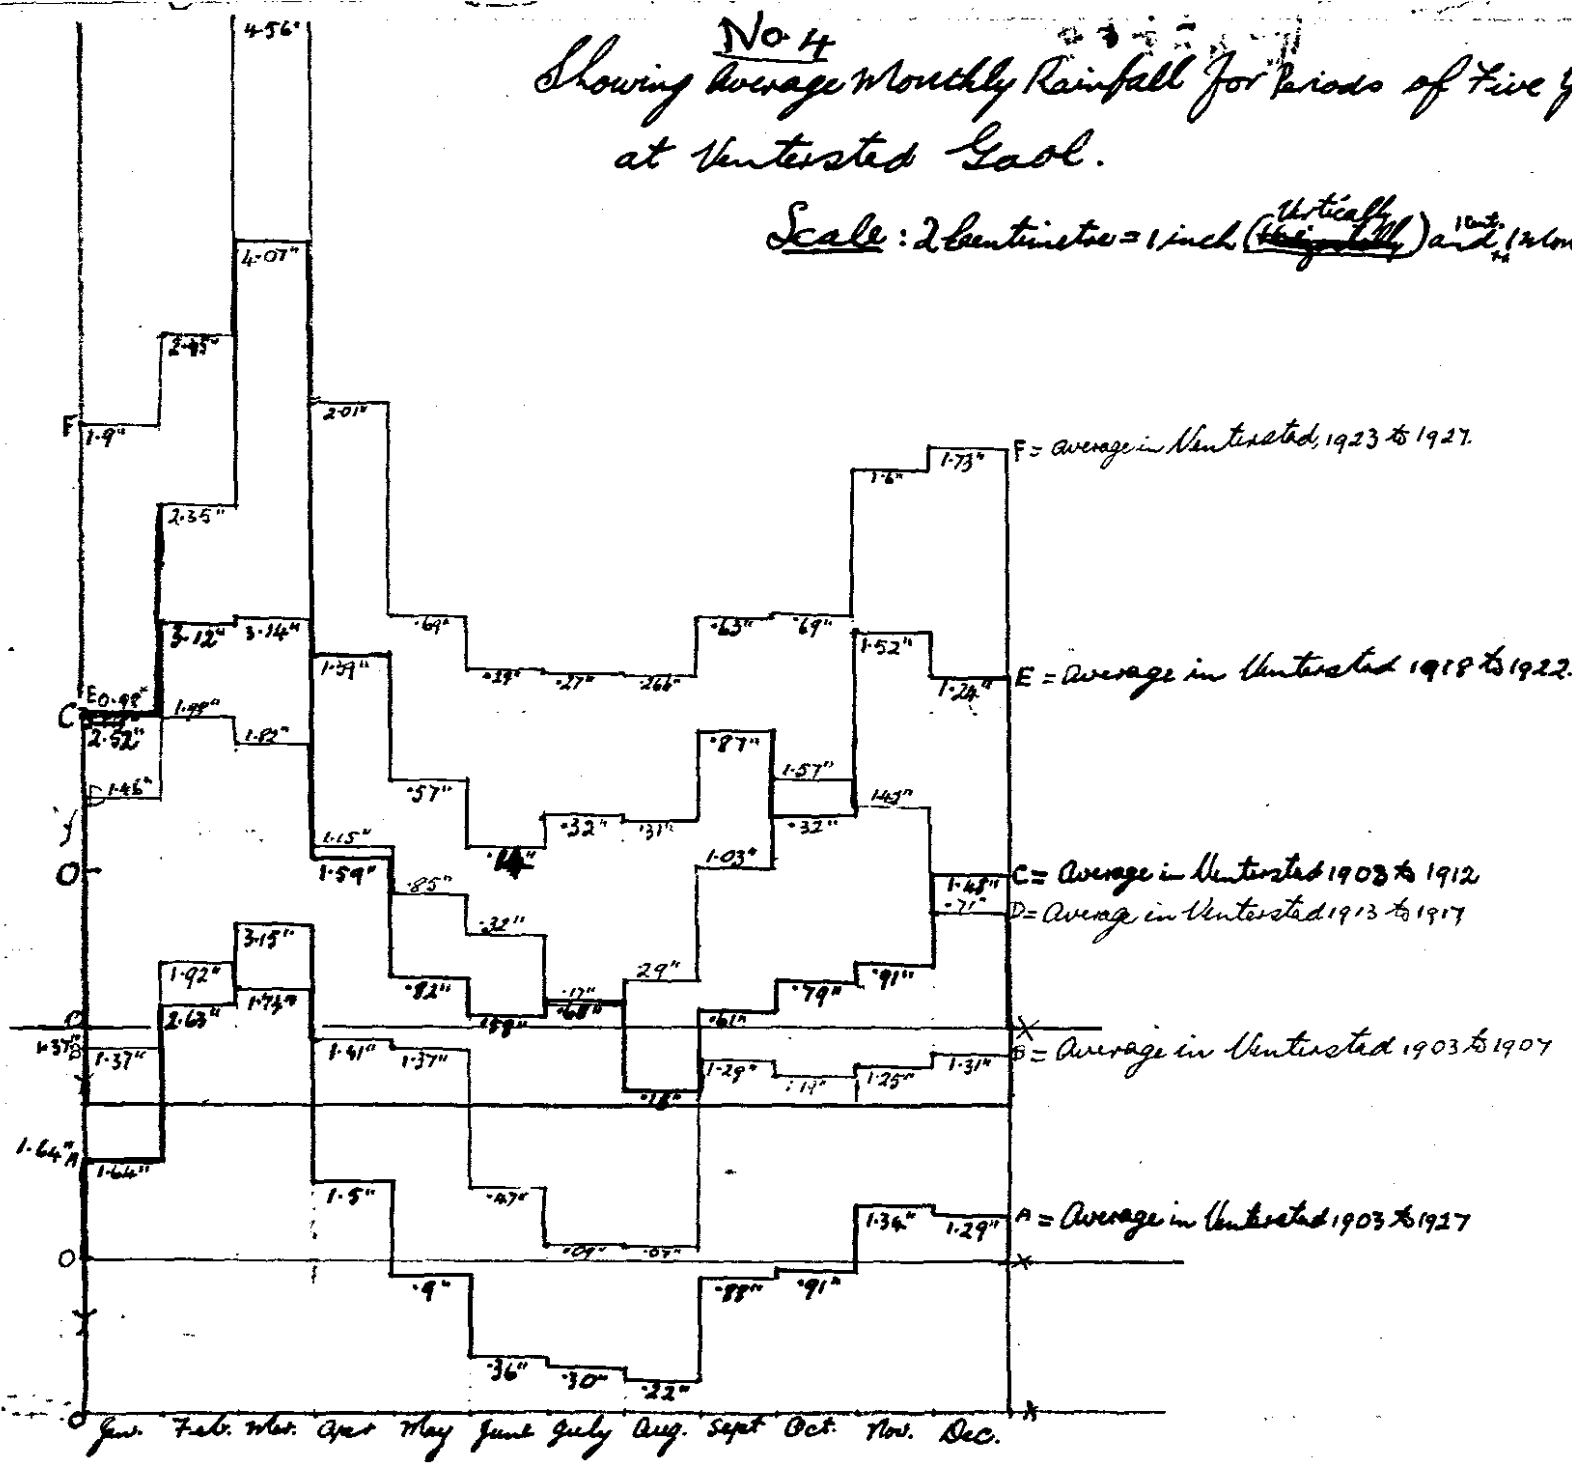 No. 4
Showing Average Monthly Rainfall for Periods of Five Y
at Ventersted Gaol.
Scale: 2 Centimetre = 1 inch (Vertically) and 1 Cent. 1 Mon
4.56"
4.07"
2.45"
F 1.9"
2.01"
F = Average in Ventersted, 1923 to 1927.
1.73"
1.6"
2.35"
.69" .63" .69"
3.12" 3.14"
1.52"
1.39"
.27" .266"
E = Average in Ventersted 1918 to 1922.
1.24"
E 0.98"
C 2.52"
1.99"
1.82"
.87"
1.57"
D 1.46"
.57" .32" .31" .32" 1.43"
.14"
1.15"
1.03"
O
1.59"
.85"
1.48" C = Average in Ventersted 1908 to 1912
.71" D = Average in Ventersted 1913 to 1917
.32"
3.15"
1.92"
.29"
.91"
.82" .79"
1.73" .17"
2.63" .58" .68" .61"
O X
1.37" B 1.37"
1.41" 1.37"
B = Average in Ventersted 1903 to 1907
1.29" .19" 1.25" 1.31"
.18"
1.64" A 1.64"
1.5" .47"
1.34" 1.29" A = Average in Ventersted 1903 to 1927
.09" .07"
O X
.9" .88" .91"
Y
.36" .30" .22"
O X
Jan. Feb. Mar. Apr May June July Aug. Sept Oct. Nov. Dec.